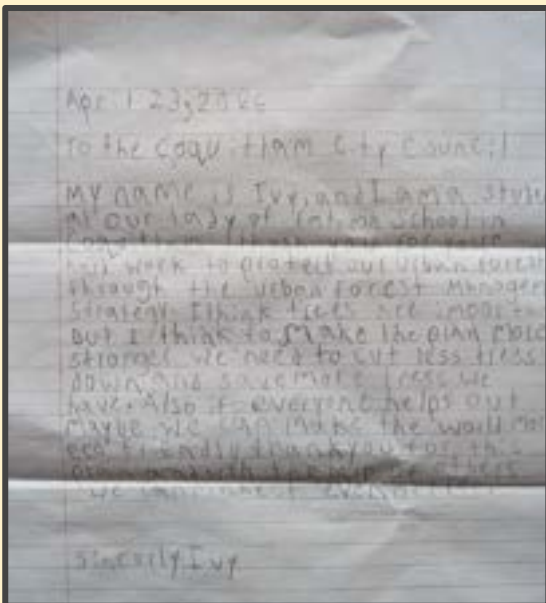 April 23, 2026
To the Coquitlam City Council
My name is Ivy, and I am a stude
at Our Lady of Fatima School in
Coquitlam. Thank you for your
hard work to protect out urban forest
through the urban Forest Manager
Strategy. I think trees are importa
But I think to make the plan more
stronger we need to cut less tress
down and save more tress we
have. Also if everyone helps out
maybe we can make the world mor
eco friendly thank you for this
plan and with the others
we can make it even better
Sincerily, Ivy